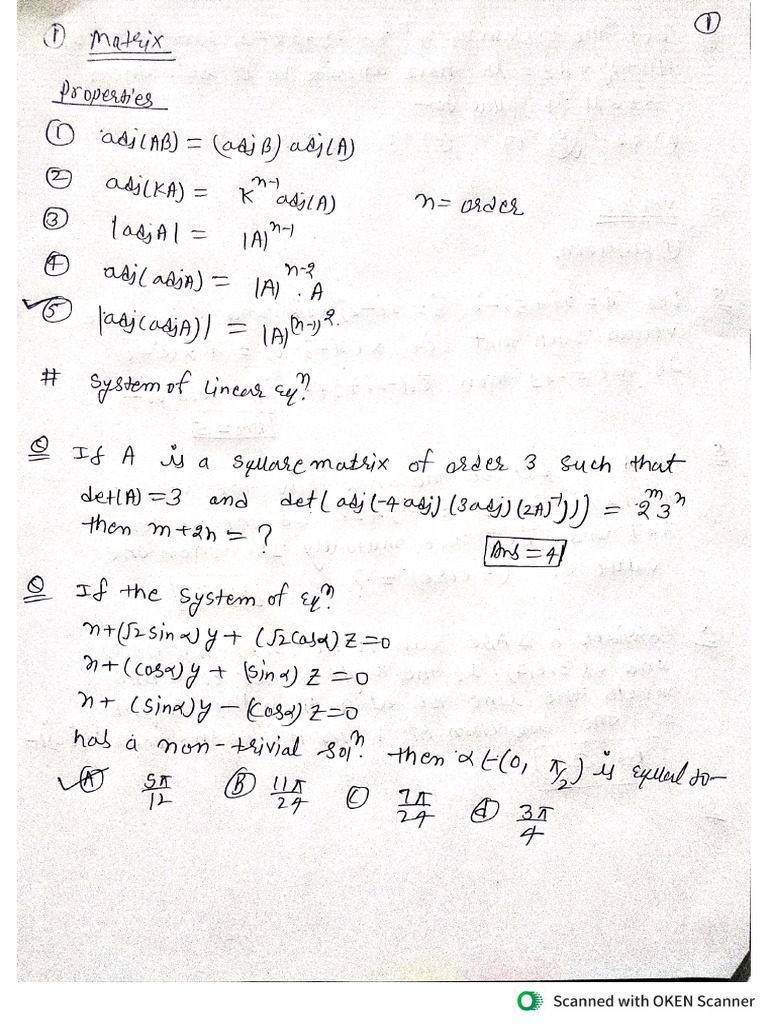 ① Matrix
①
Properties
① adj(AB) = (adj B) adj(A)
② adj(KA) = K^(n-1) adj(A) n = order
③ |adj A| = |A|^(n-1)
④ adj(adj A) = |A|^(n-2) . A
✓⑤ |adj(adj A)| = |A|^((n-1)^2).
# System of linear Eqⁿ.
Q If A is a square matrix of order 3 such that
det(A) = 3 and det(adj(-4 adj)(3 adj)(2A)^(-1)))) = 2^m 3^n
then m+2n = ?
Ans = 4
Q If the system of Eqⁿ.
x + (√2 sin α) y + (√2 cos α) z = 0
x + (cos α) y + (sin α) z = 0
x + (sin α) y - (cos α) z = 0
has a non-trivial solⁿ. then α ∈ (0, π/2) is equal to-
✓Ⓐ 5π/12 Ⓑ 11π/24 Ⓒ 7π/24 ⓓ 3π/4
Scanned with OKEN Scanner